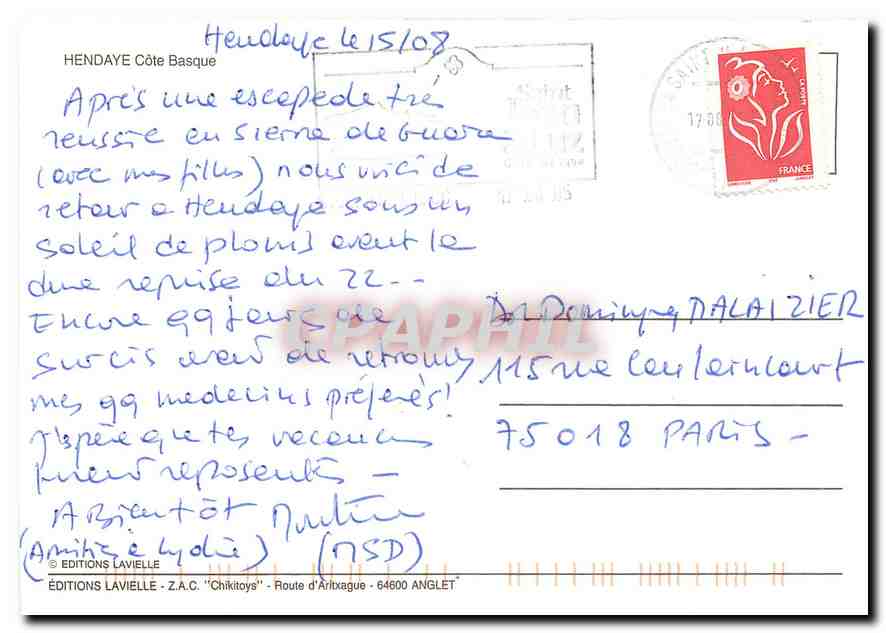 Hendaye le 15/08
HENDAYE Côte Basque
Après une escapade très
réussie en Sierra de Guara
(avec mes filles) nous voici de
retour à Hendaye sous un
soleil de plomb avant la
dure reprise du 22 --
Encore qq jours de
sursis avant de retrouver
mes qq medecins préférés!
J'espère que tes vacances
furent reposantes —
A Bientôt Martine
(Amitiés à Lydie) (MSD)
© EDITIONS LAVIELLE
ÉDITIONS LAVIELLE - Z.A.C. "Chikitoys" - Route d'Aritxague - 64600 ANGLET
Saint
SAINT
17
LA POSTE
FRANCE
Dr Dominique MALAIZIER
115 rue Caulaincourt
75018 PARIS -
CPAPHIL